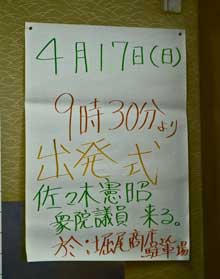 4月17日(日)
9時30分より
出発式
佐々木憲昭
衆院議員 来る。
於:堀尾商店
駐車場